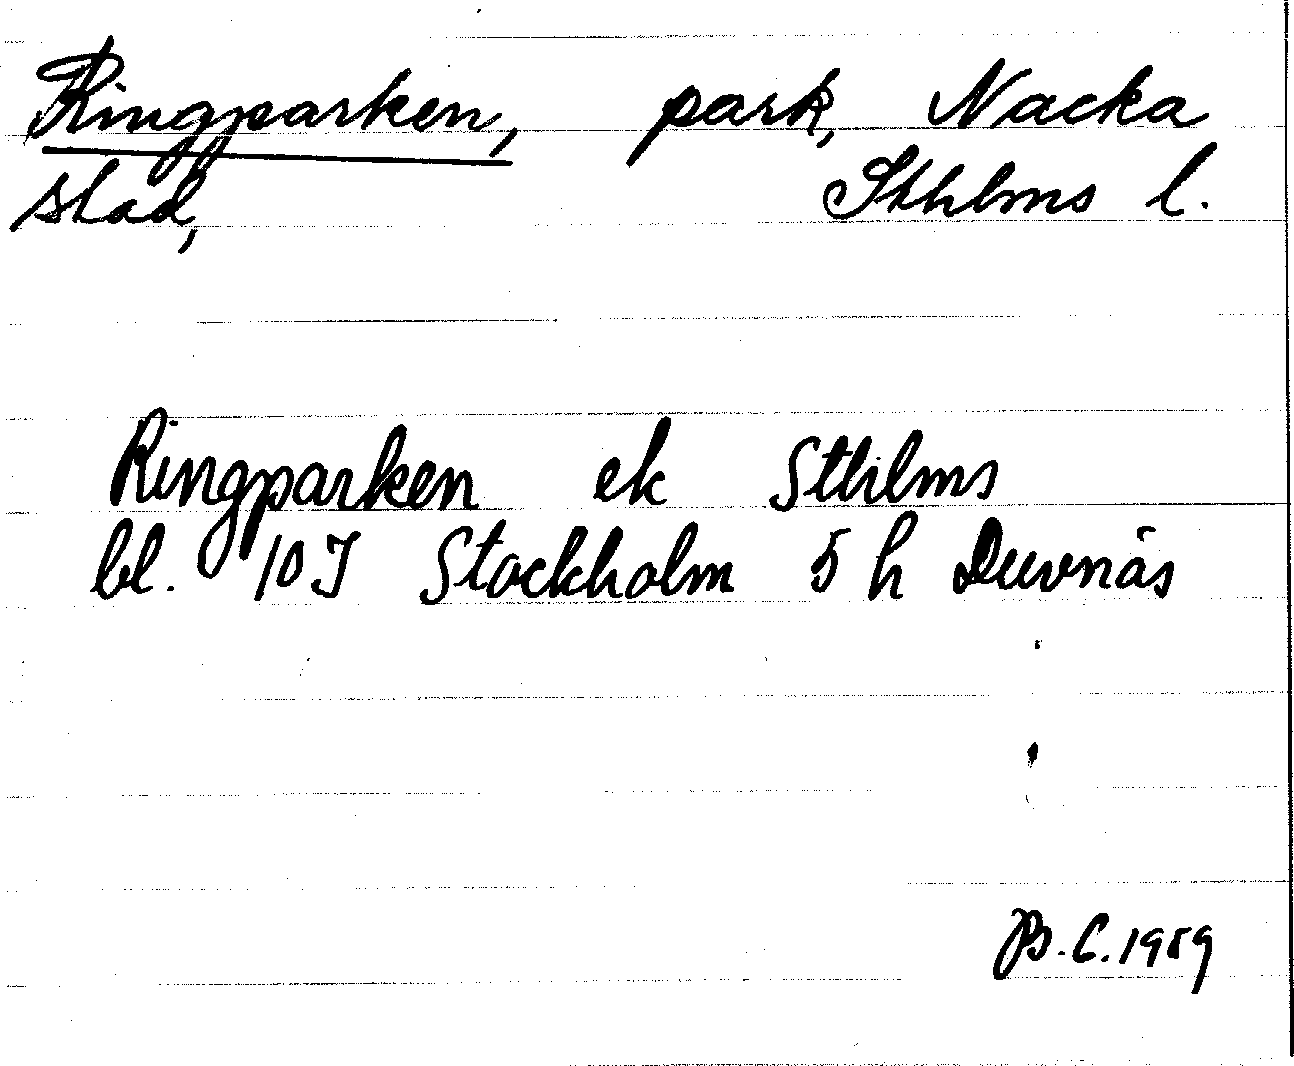 Ringparken, park, Nacka
stad, Sthlms l.
Ringparken ek Sthlms
bl. 10J Stockholm 5 h Duvnäs
B.C. 1989